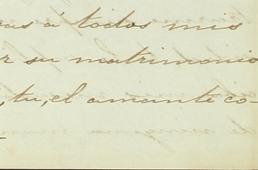 á todos mis
su matrimonio
, tu, el amante co-